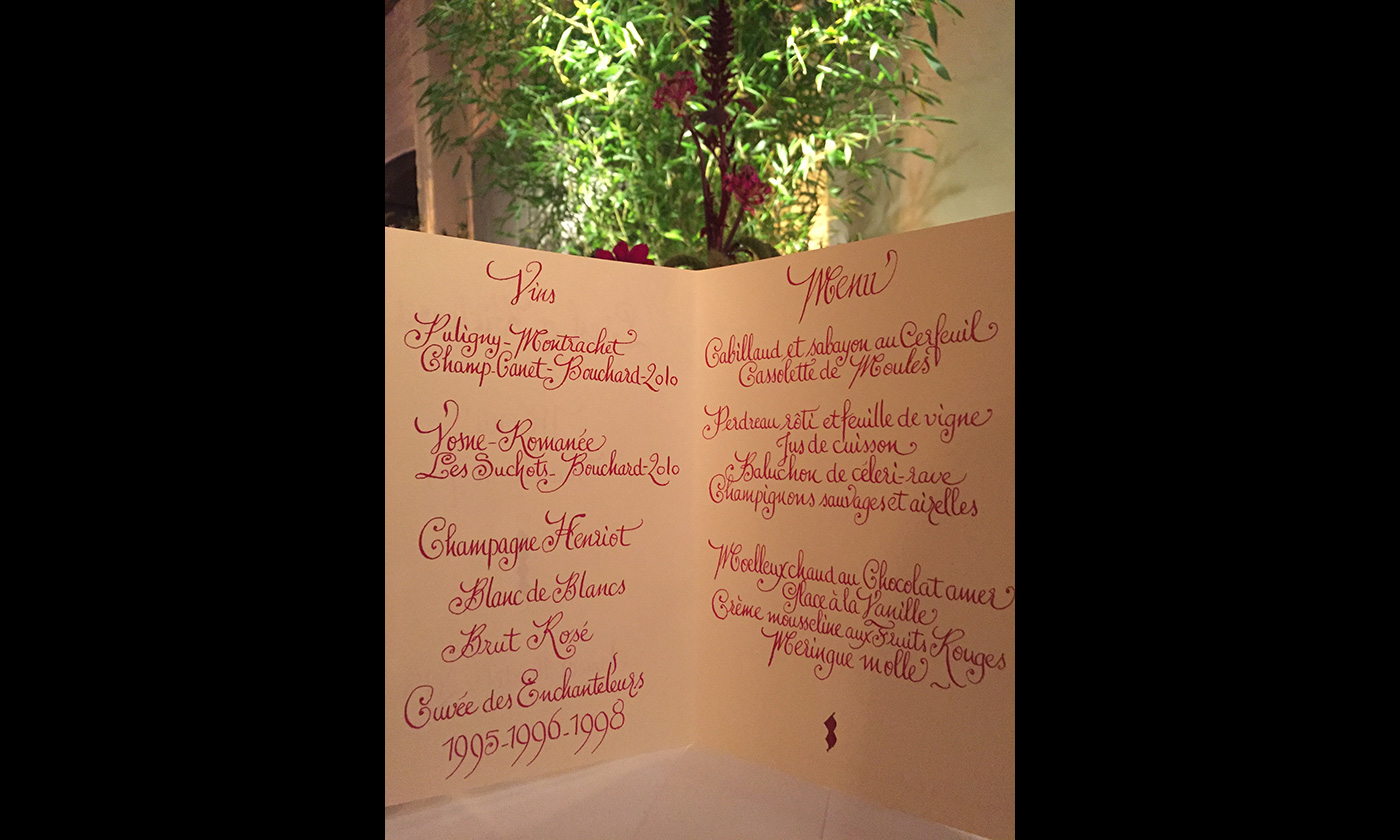 Vins
Puligny-Montrachet
Champ-Canet-Bouchard-2010
Vosne-Romanée
Les Suchots-Bouchard-2010
Champagne Henriot
Blanc de Blancs
Brut Rosé
Cuvée des Enchanteleurs
1995-1996-1998
Menu
Cabillaud et sabayon au Cerfeuil
Cassolette de Moules
Perdreau rôti et feuille de vigne
Jus de cuisson
Baluchon de céleri-rave
Champignons sauvages et airelles
Moelleux chaud au Chocolat amer
Glace à la Vanille
Crème mousseline aux Fruits Rouges
Meringue molle